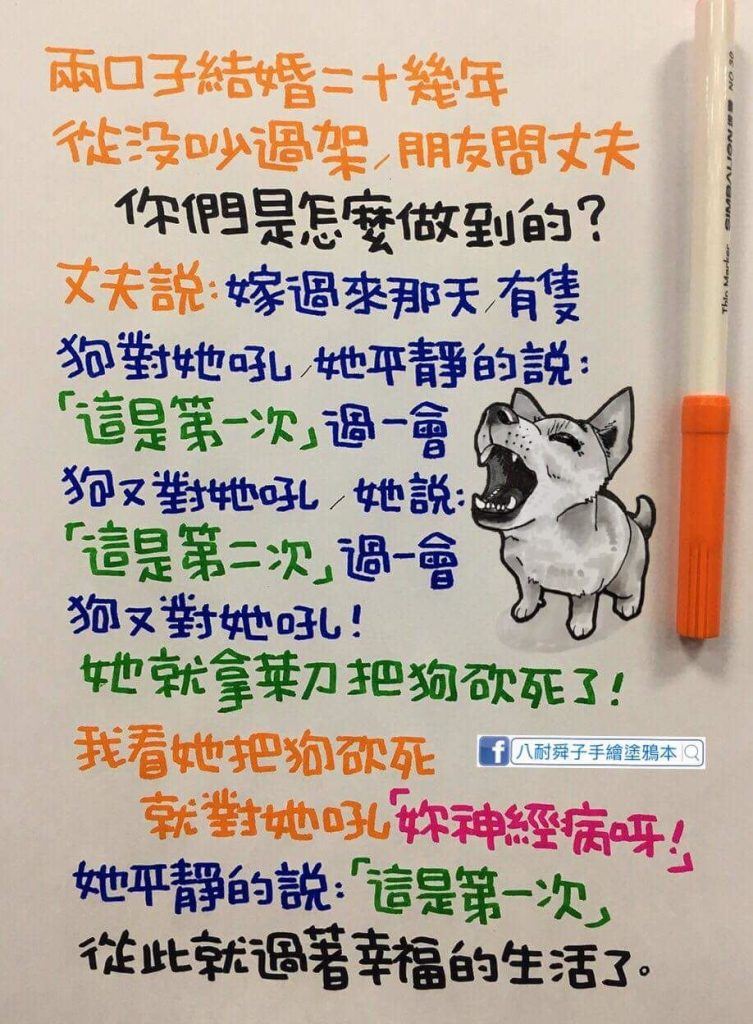 兩口子結婚二十幾年
從沒吵過架，朋友問丈夫
你們是怎麼做到的？
丈夫說：嫁過來那天，有隻
狗對她吼，她平靜的說：
「這是第一次」過一會
狗又對她吼，她說：
「這是第二次」過一會
狗又對她吼！
她就拿菜刀把狗砍死了！
我看她把狗砍死
就對她吼「妳神經病呀！」
她平靜的說：「這是第一次」
從此就過著幸福的生活了。
八耐舜子手繪塗鴉本
Thin Marker SIMBALION 雄獅 NO.30